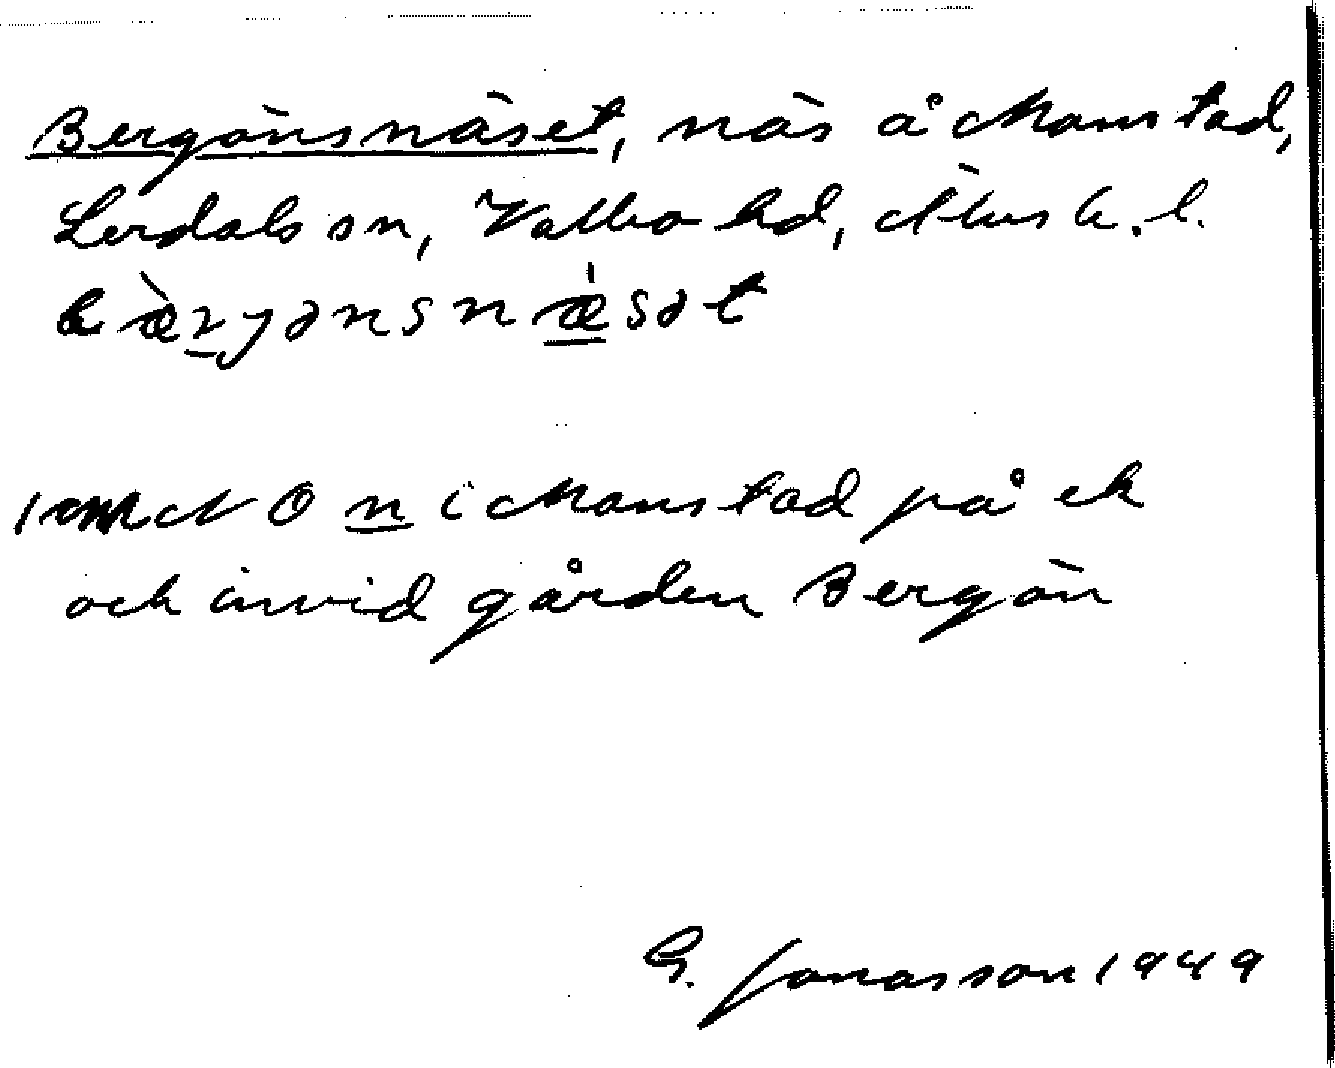 Bergönsnäset, näs å Manstad,
Lerdals sn, Valbo hd, Älvsb. l.
bæ̀rjənsnæ̀sət
1 cm NO n i Manstad på ek
och invid gården Bergön
G. Jonasson 1949